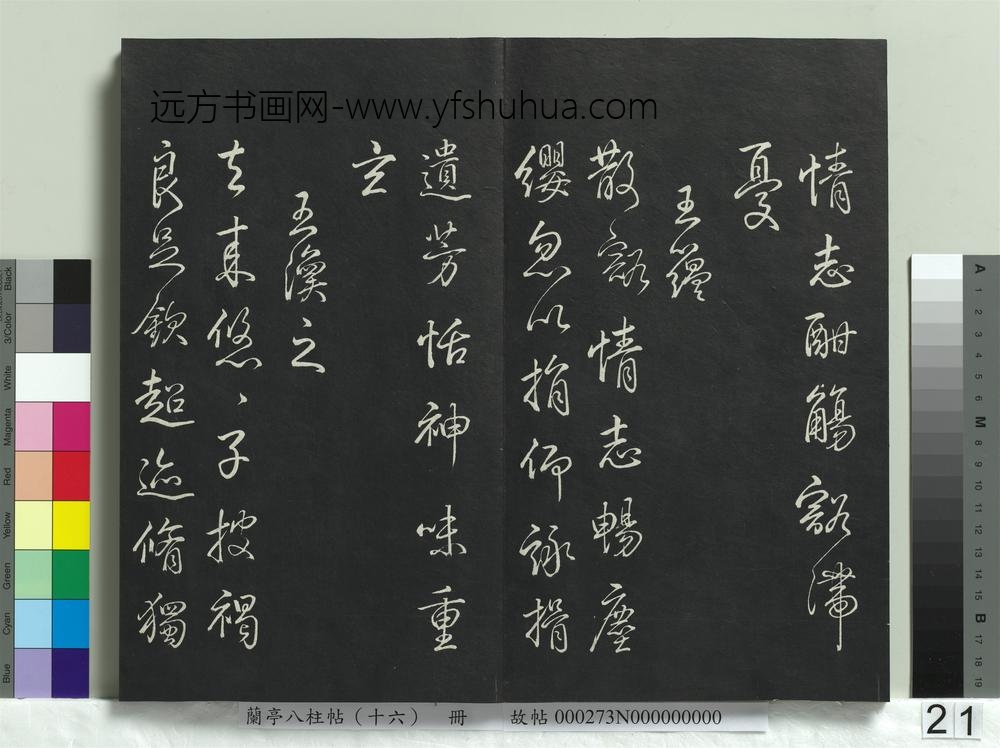 远方书画网-www.yfshuhua.com
情志酣觴豁滯
憂
王蘊
散豁情志暢塵
纓忽以捐仰詠挹
遺芳恬神味重
玄
王渙之
去來悠、子披褐
良足欽超迹脩獨
蘭亭八柱帖（十六） 冊 故帖 000273N000000000
21
Black
3/Color
White
Magenta
Red
Yellow
Green
Cyan
Blue
A 1 2 3 4 5 6 M 8 9 10 11 12 13 14 15 B 17 18 19